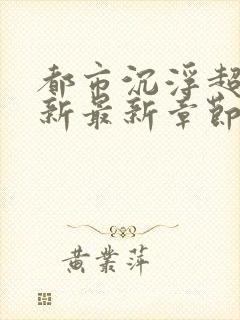 都市沉浮超
新最新章节
黄業萍